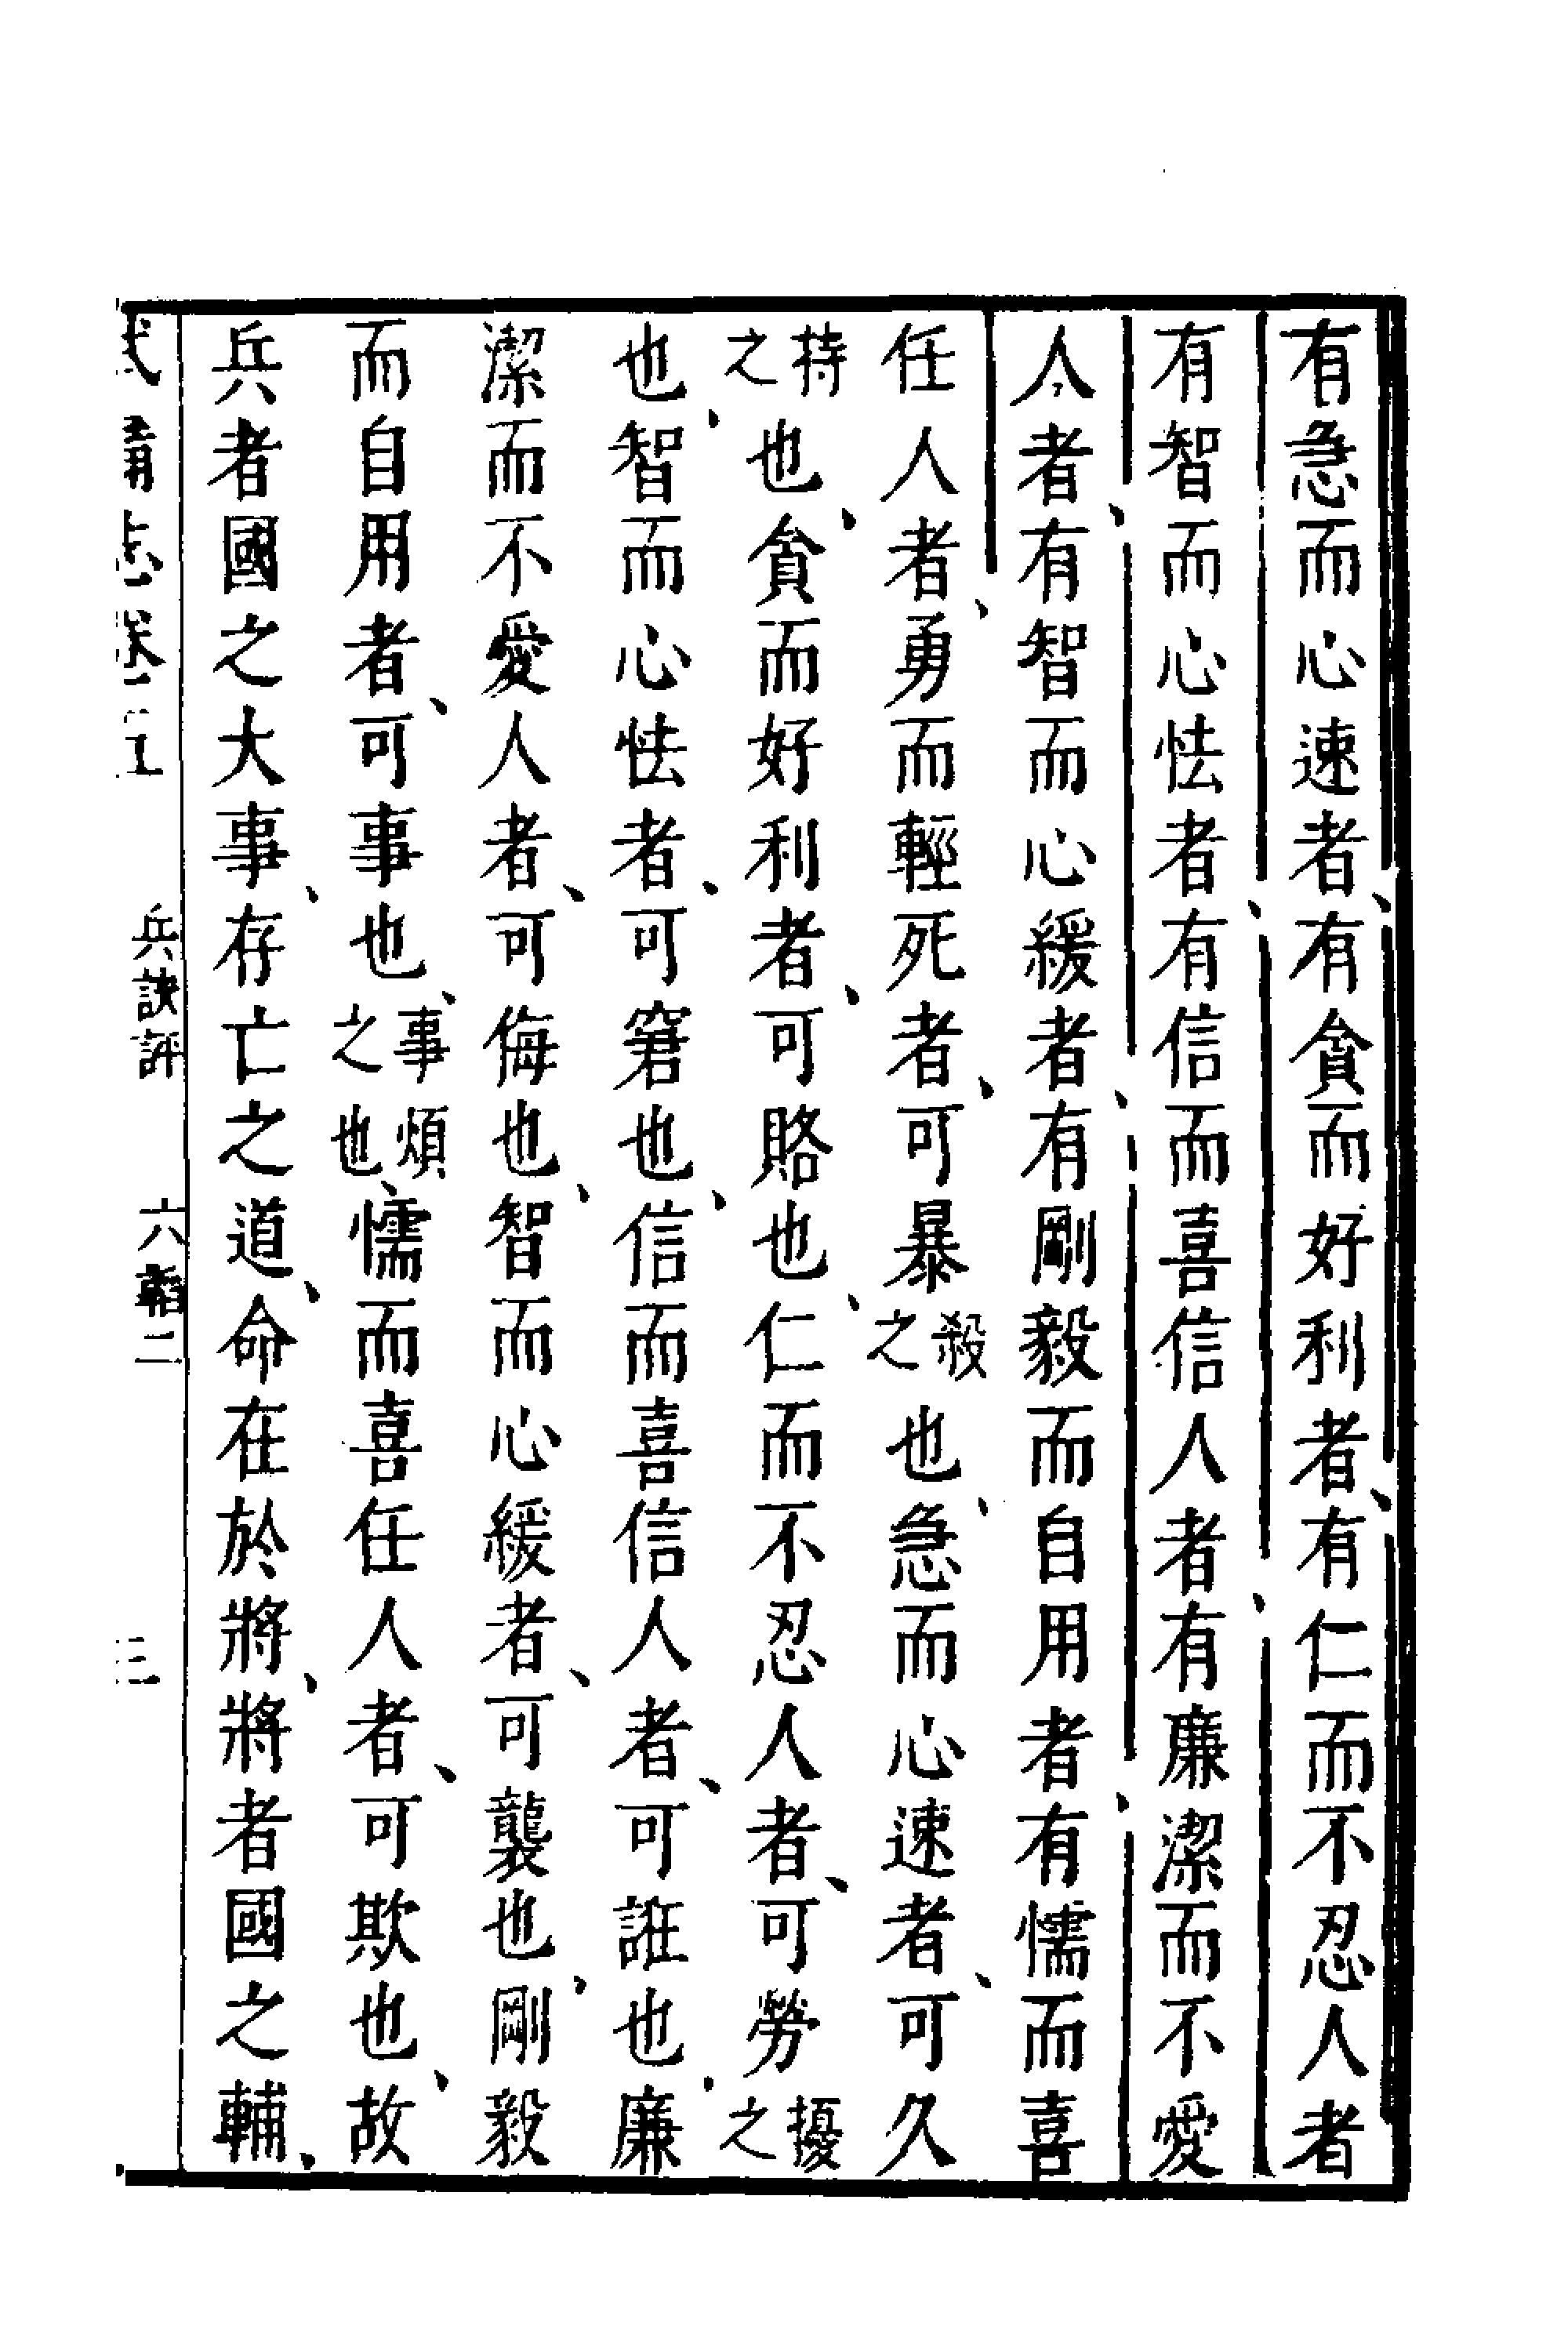 有急而心速者、有貪而好利者、有仁而不忍人者
有智而心怯者、有信而喜信人者、有廉潔而不愛
人者、有智而心緩者、有剛毅而自用者、有懦而喜
任人者、勇而輕死者、可暴殺之也、急而心速者、可久
持之也、貪而好利者、可賂也、仁而不忍人者、可勞擾之
也、智而心怯者、可窘也、信而喜信人者、可誑也、廉
潔而不愛人者、可侮也、智而心緩者、可襲也、剛毅
而自用者、可事也、事煩之也、懦而喜任人者、可欺也、故
兵者國之大事、存亡之道、命在於將、將者國之輔、
武備志卷 兵訣評 六韜二